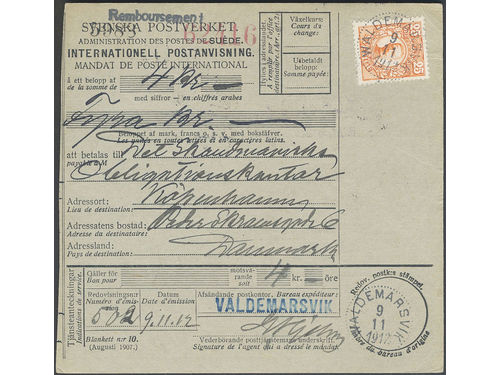 Remboursement
SVENSKA POSTVERKET
ADMINISTRATION DES POSTES DE SUÈDE.
INTERNATIONELL POSTANVISNING.
MANDAT DE POSTE INTERNATIONAL
Växlingskurs:
Cours du change:
Utbetalt belopp:
Somme payée:
Ifylles i adresslandet
À remplir par l'office
destinataire
VALDEMARSVIK
9
11
1912
25
Å ett belopp af
de la somme de
4 Kr
med siffror – en chiffres arabes
Fyra Kr
Beloppet af mark, francs o. s. v. med bokstäfver.
Les unités en toutes lettres et en caractères latins.
att betalas till
payable à M
Det Skandinaviske
Obligationskontor
Adressort:
Lieu de destination:
Köpenhamn
Adressatens bostad:
Adresse du destinataire:
Adressland:
Pays de destination:
Danmark
Tjänsteanteckningar
Indications de service
Gäller för
Bon pour
motsvarande
soit
4 kr. öre
Redovisningsnr
Numéro d'émission
502
Datum
Date d'émission
9.11.12
Afsändande postkontor. Bureau expéditeur:
VALDEMARSVIK
Blankett nr 10.
(Augusti 1907.)
Vederbörande posttjänstemans underskrift.
Signature de l'agent qui a dressé le mandat.
Redov. postk:s stämpel.
VALDEMARSVIK
9
11
1912
Timbre du bureau d'origine